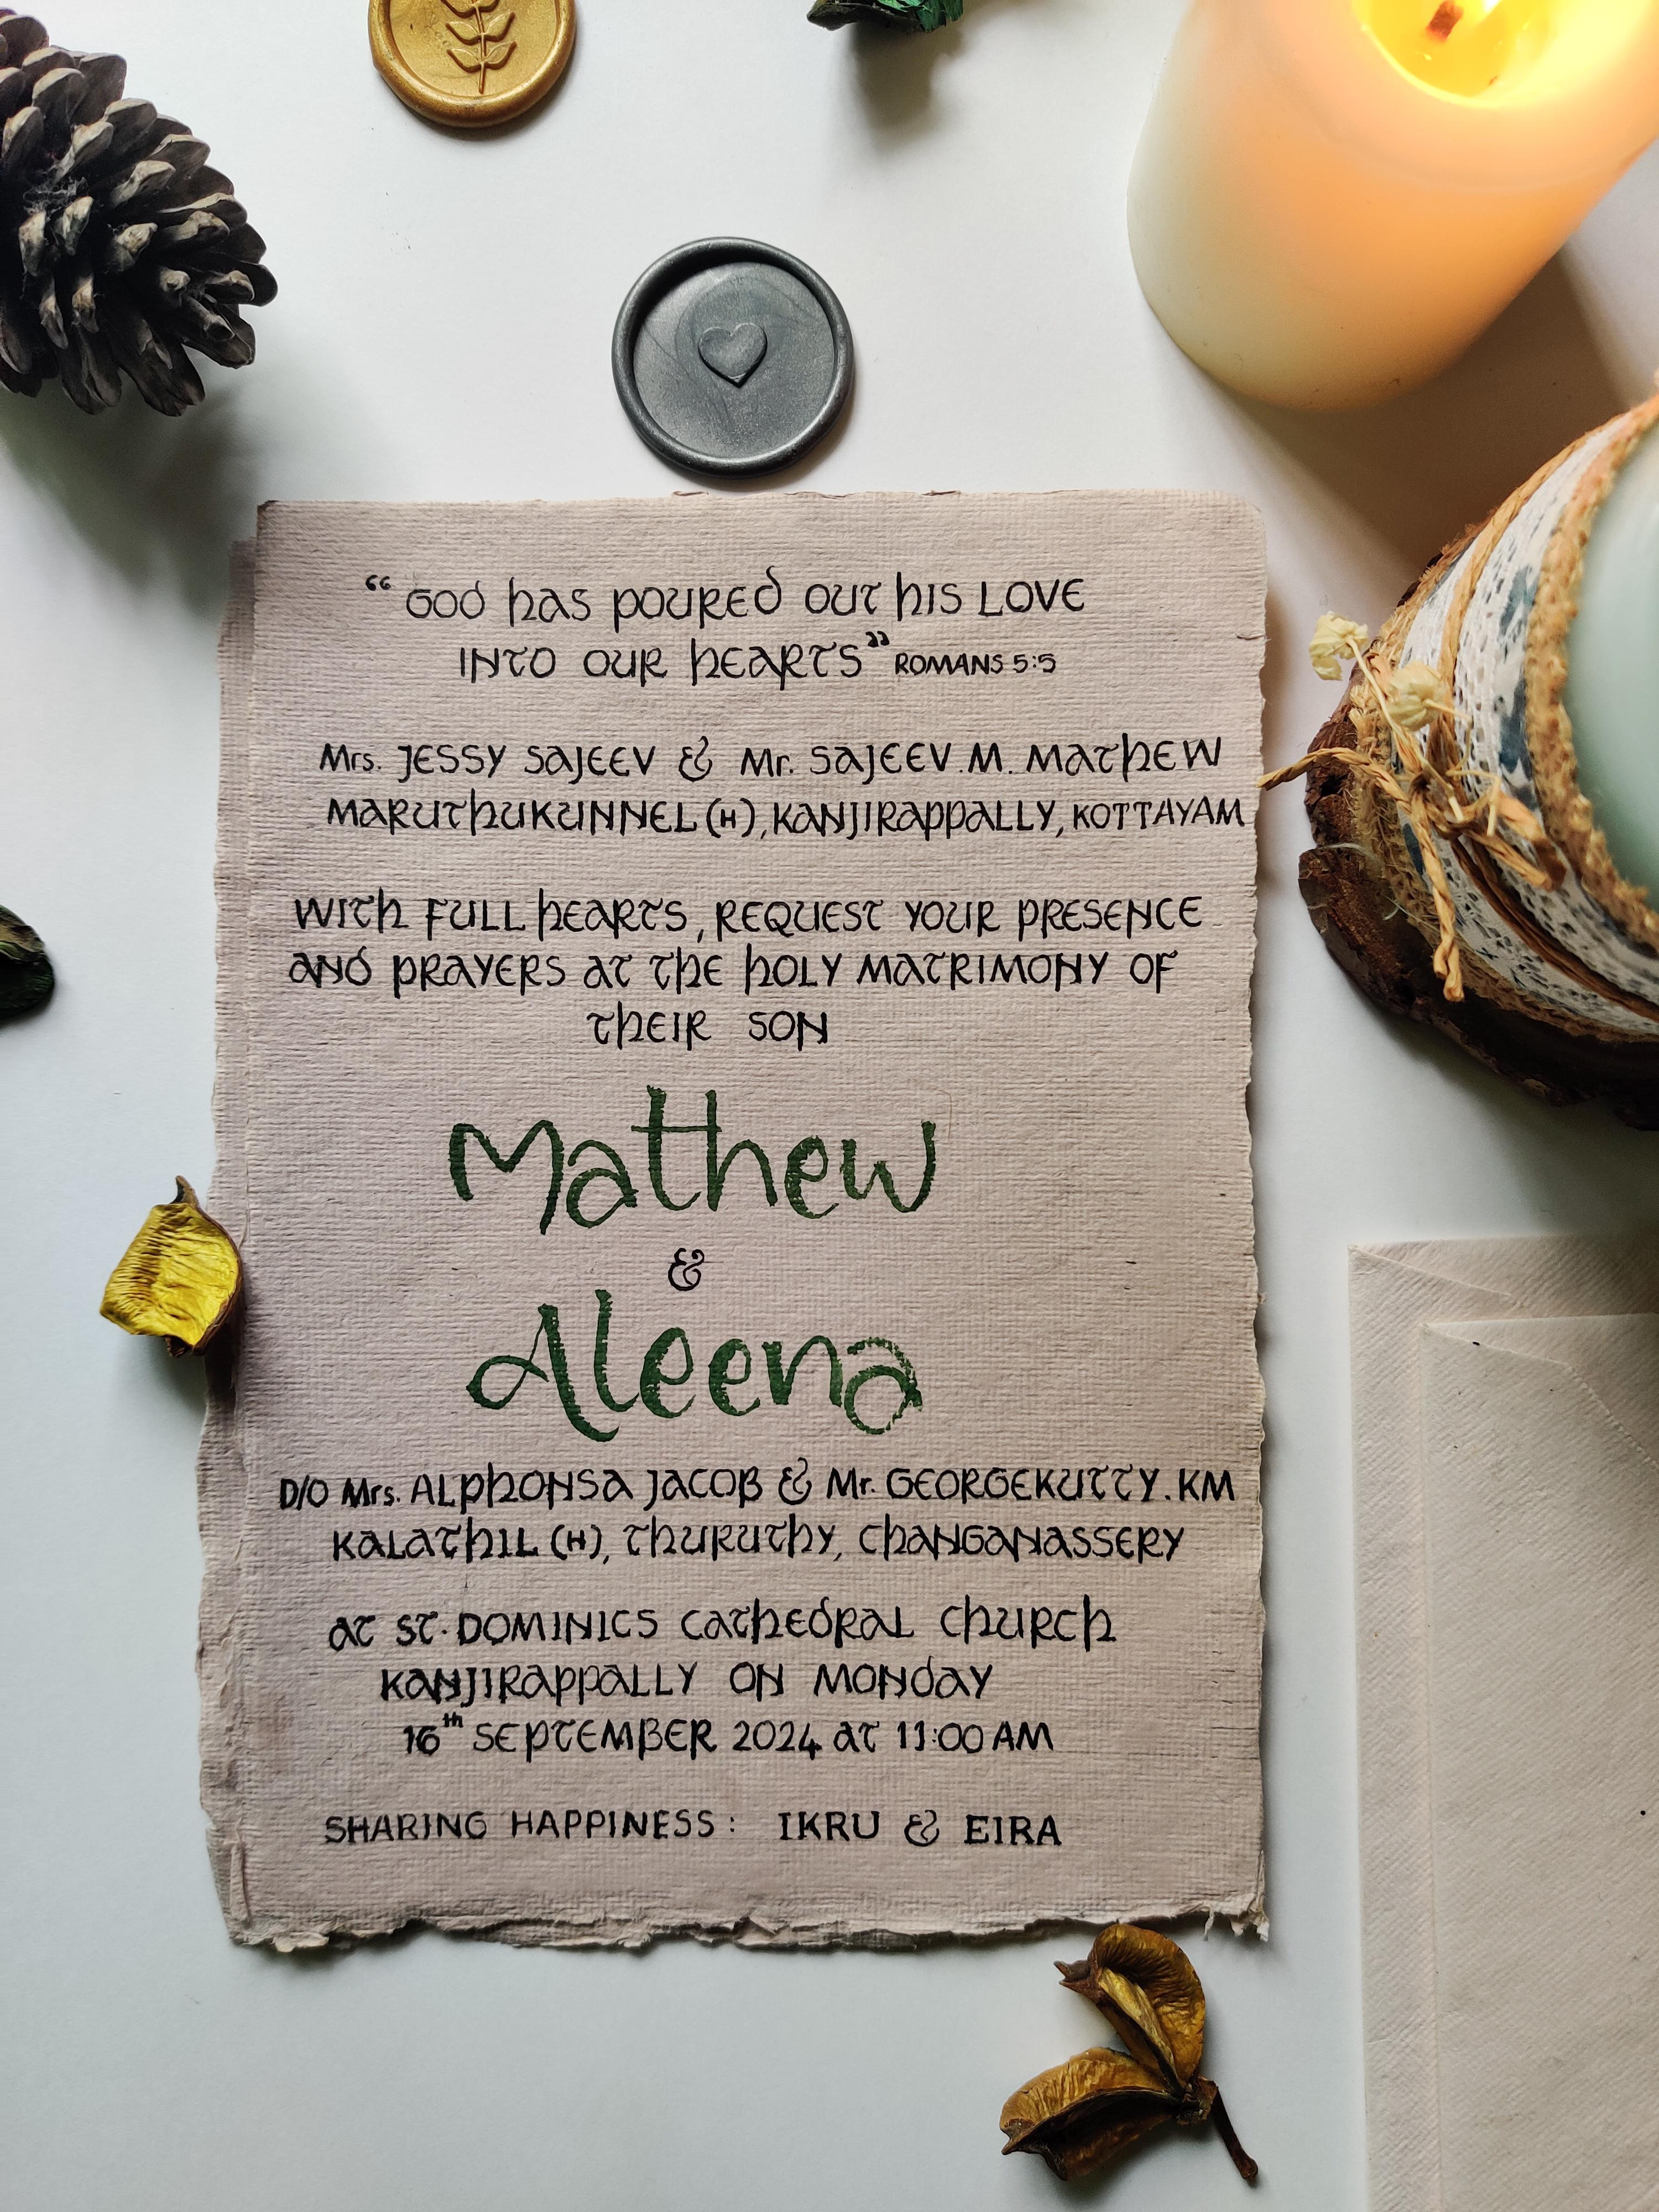 “GOD HAS POURED OUT HIS LOVE
INTO OUR HEARTS” ROMANS 5:5
Mrs. JESSY SAJEEV & Mr. SAJEEV.M. MATHEW
MARUTHUKUNNEL (H), KANJIRAPPALLY, KOTTAYAM
WITH FULL HEARTS, REQUEST YOUR PRESENCE
AND PRAYERS AT THE HOLY MATRIMONY OF
THEIR SON
Mathew
&
Aleena
D/O Mrs. ALPHONSA JACOB & Mr. GEORGEKUTTY.KM
KALATHIL (H), THURUTHY, CHANGANASSERY
AT ST. DOMINICS CATHEDRAL CHURCH
KANJIRAPPALLY ON MONDAY
16th SEPTEMBER 2024 AT 11:00 AM
SHARING HAPPINESS: IKRU & EIRA